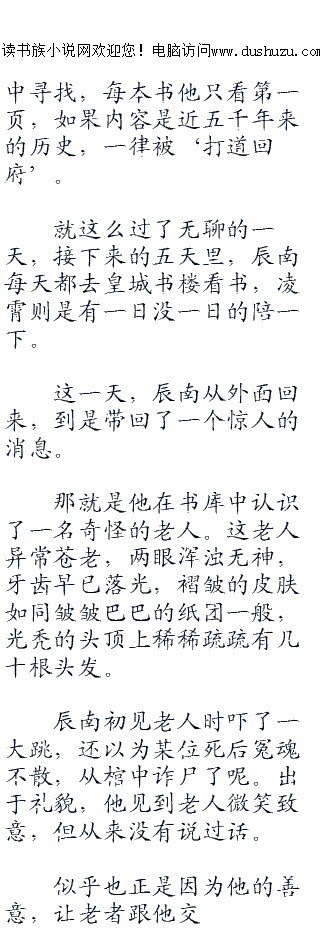 读书族小说网欢迎您！电脑访问www.dushuzu.com
中寻找，每本书他只看第一
页，如果内容是近五千年来
的历史，一律被‘打道回
府’。
就这么过了无聊的一
天，接下来的五天里，辰南
每天都去皇城书楼看书，凌
霄则是有一日没一日的陪一
下。
这一天，辰南从外面回
来，到是带回了一个惊人的
消息。
那就是他在书库中认识
了一名奇怪的老人。这老人
异常苍老，两眼浑浊无神，
牙齿早已落光，褶皱的皮肤
如同皱皱巴巴的纸团一般，
光秃的头顶上稀稀疏疏有几
十根头发。
辰南初见老人时吓了一
大跳，还以为某位死后冤魂
不散，从棺中诈尸了呢。出
于礼貌，他见到老人微笑致
意，但从来没有说过话。
似乎也正是因为他的善
意，让老者跟他交